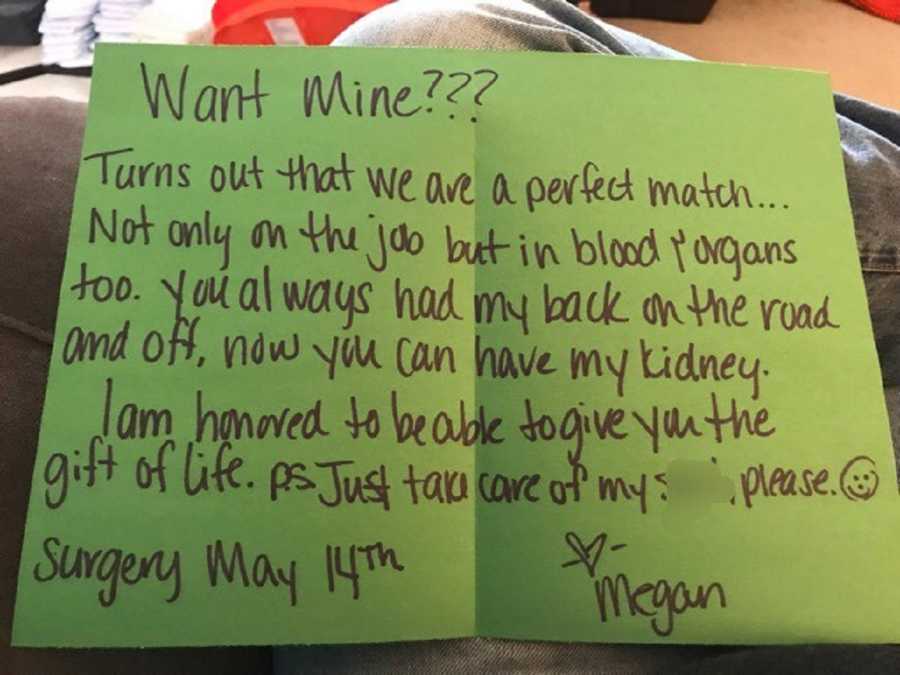 Want Mine???
Turns out that we are a perfect match...
Not only on the job but in blood & organs
too. You always had my back on the road
and off, now you can have my kidney.
I am honored to be able to give you the
gift of life. ps Just take care of my please. ☺
Surgery May 14th
♡-
Megan